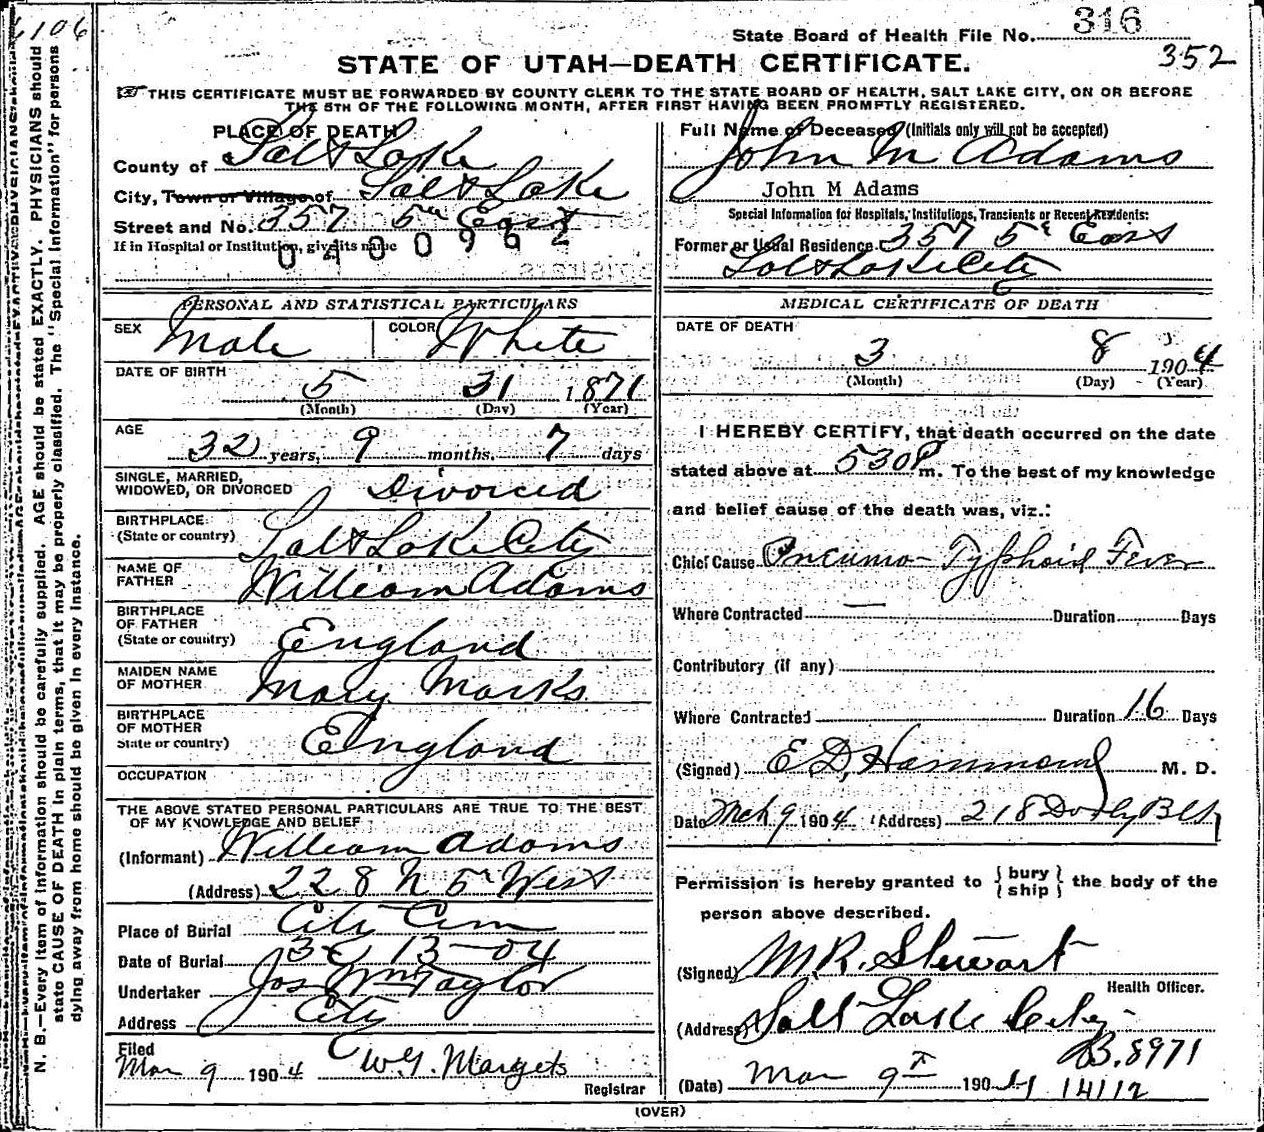 1106
State Board of Health File No. 316
352
STATE OF UTAH—DEATH CERTIFICATE.
THIS CERTIFICATE MUST BE FORWARDED BY COUNTY CLERK TO THE STATE BOARD OF HEALTH, SALT LAKE CITY, ON OR BEFORE
THE 5TH OF THE FOLLOWING MONTH, AFTER FIRST HAVING BEEN PROMPTLY REGISTERED.
PLACE OF DEATH
County of Salt Lake
City, Town or Village of Salt Lake
Street and No. 357 5th East
If in Hospital or Institution, give its name
0400962
Full Name of Deceased (Initials only will not be accepted)
John M Adams
John M Adams
Special Information for Hospitals, Institutions, Transients or Recent Residents:
Former or Usual Residence 357 5t East
Salt Lake City
PERSONAL AND STATISTICAL PARTICULARS
SEX Male COLOR White
DATE OF BIRTH
5 31 1871
(Month) (Day) (Year)
AGE
32 years, 9 months, 7 days
SINGLE, MARRIED,
WIDOWED, OR DIVORCED Divorced
BIRTHPLACE
(State or country) Salt Lake City
NAME OF
FATHER William Adams
BIRTHPLACE
OF FATHER
(State or country) England
MAIDEN NAME
OF MOTHER Mary Marks
BIRTHPLACE
OF MOTHER
State or country) England
OCCUPATION
THE ABOVE STATED PERSONAL PARTICULARS ARE TRUE TO THE BEST
OF MY KNOWLEDGE AND BELIEF
(Informant) William Adams
(Address) 228 N 5th West
Place of Burial City Cem
Date of Burial 3 13-04
Undertaker Jos Wm Taylor
Address City
Filed
Mar 9 1904 W. G. Margets
Registrar
MEDICAL CERTIFICATE OF DEATH
DATE OF DEATH
3 8 1904
(Month) (Day) (Year)
I HEREBY CERTIFY, that death occurred on the date
stated above at 530 P m. To the best of my knowledge
and belief cause of the death was, viz.:
Chief Cause Pneumo-Typhoid Fever
Where Contracted — Duration Days
Contributory (if any)
Where Contracted Duration 16 Days
(Signed) E D, Hammond M. D.
Date Mch 9 1904 (Address) 218 Dooly Blk
Permission is hereby granted to { bury / ship } the body of the
person above described.
(Signed) M. R. Stewart
Health Officer.
(Address) Salt Lake City
B. 8971
(Date) Mar 9th 1904 14112
(OVER)
N. B.—Every item of information should be carefully supplied. AGE should be stated EXACTLY. PHYSICIANS should
state CAUSE OF DEATH in plain terms, that it may be properly classified. The "Special Information" for persons
dying away from home should be given in every instance.